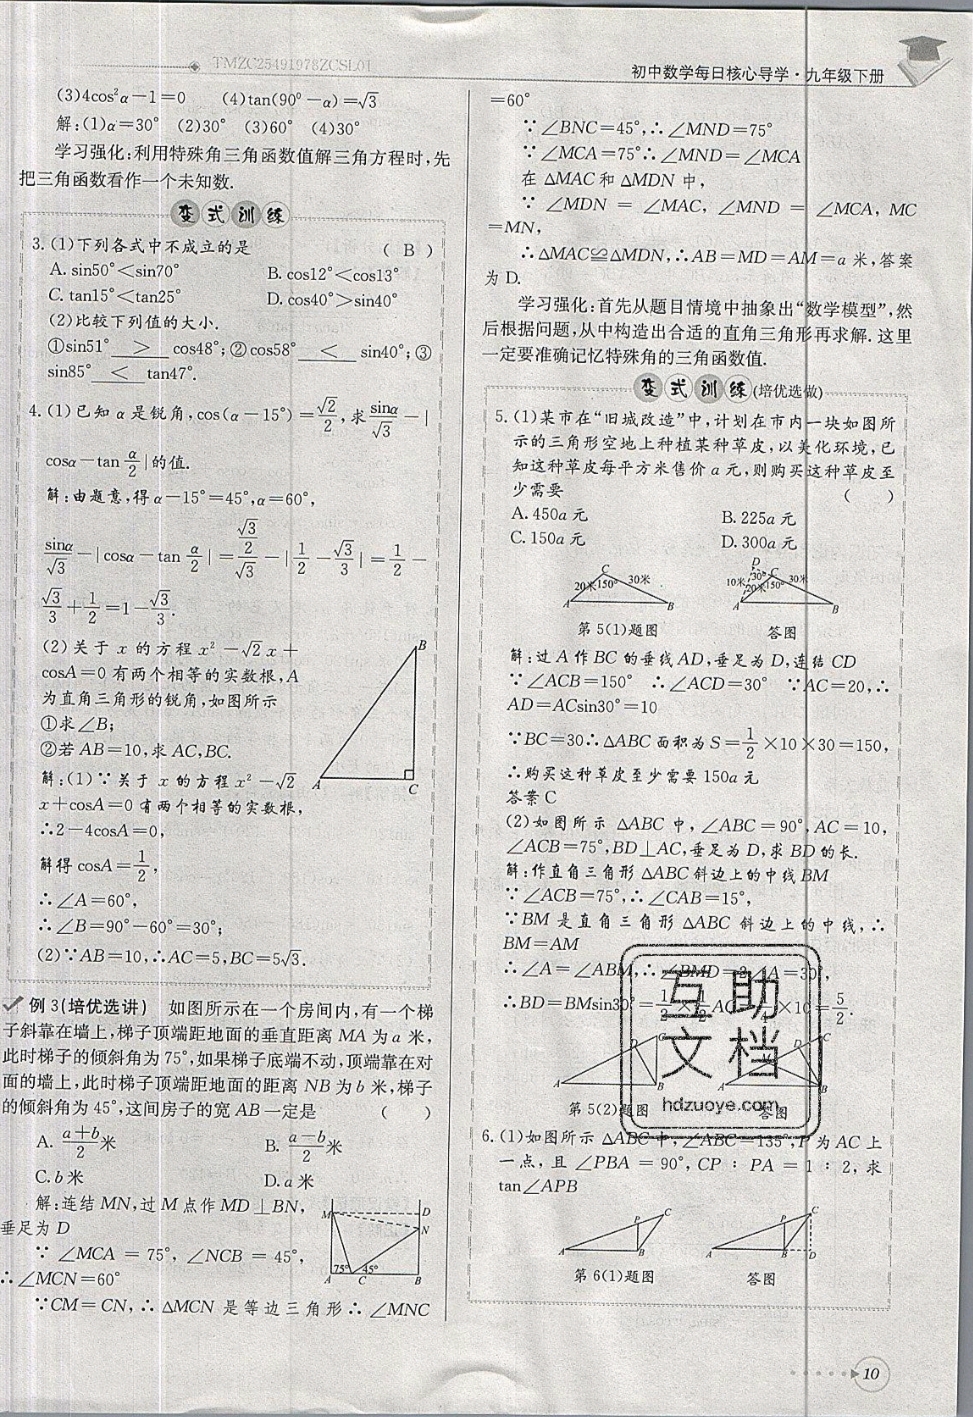 TMZC25491978ZCSL01
初中数学每日核心导学·九年级下册
(3)4cos²α－1＝0　(4)tan(90⁰－α)＝√3
解:(1)α＝30°　(2)30°　(3)60°　(4)30°
学习强化:利用特殊角三角函数值解三角方程时,先
把三角函数看作一个未知数.
变式训练
3.(1)下列各式中不成立的是　( B )
A. sin50°＜sin70°　B. cos12°＜cos13°
C. tan15°＜tan25°　D. cos40°＞sin40°
(2)比较下列值的大小.
①sin51° ＞ cos48°;②cos58° ＜ sin40°;③
sin85° ＜ tan47°.
4.(1)已知α是锐角,cos(α－15°)＝√2/2,求sinα/√3－|
cosα－tan α/2|的值.
解:由题意,得α－15°＝45°,α＝60°,
sinα/√3－|cosα－tan α/2|＝(√3/2)/√3－|1/2－√3/3|＝1/2－
√3/3＋1/2＝1－√3/3.
(2)关于x的方程x²－√2x＋
cosA＝0有两个相等的实数根,A
为直角三角形的锐角,如图所示
①求∠B;
②若AB＝10,求AC,BC.
解:(1)∵关于x的方程x²－√2
x＋cosA＝0有两个相等的实数根,
∴2－4cosA＝0,
解得cosA＝1/2,
∴∠A＝60°,
∴∠B＝90°－60°＝30°;
(2)∵AB＝10,∴AC＝5,BC＝5√3.
B
A
C
例3(培优选讲)　如图所示在一个房间内,有一个梯
子斜靠在墙上,梯子顶端距地面的垂直距离MA为a米,
此时梯子的倾斜角为75°,如果梯子底端不动,顶端靠在对
面的墙上,此时梯子顶端距地面的距离NB为b米,梯子
的倾斜角为45°,这间房子的宽AB一定是　(　)
A. a＋b/2米　B. a－b/2米
C. b米　D. a米
解:连结MN,过M点作MD⊥BN,
垂足为D
∵∠MCA＝75°,∠NCB＝45°,
∴∠MCN＝60°
∵CM＝CN,∴△MCN是等边三角形∴∠MNC
M
D
N
75°
45°
A
C
B
＝60°
∵∠BNC＝45°,∴∠MND＝75°
∵∠MCA＝75°∴∠MND＝∠MCA
在△MAC和△MDN中,
∵∠MDN＝∠MAC,∠MND＝∠MCA,MC
＝MN,
∴△MAC≌△MDN,∴AB＝MD＝AM＝a米,答案
为D.
学习强化:首先从题目情境中抽象出“数学模型”,然
后根据问题,从中构造出合适的直角三角形再求解.这里
一定要准确记忆特殊角的三角函数值.
变式训练(培优选做)
5.(1)某市在“旧城改造”中,计划在市内一块如图所
示的三角形空地上种植某种草皮,以美化环境,已
知这种草皮每平方米售价a元,则购买这种草皮至
少需要　(　)
A. 450a元　B. 225a元
C. 150a元　D. 300a元
C
20米
150°
30米
A
B
D
10米
30°
C
20米
150°
30米
A
B
第5(1)题图　答图
解:过A作BC的垂线AD,垂足为D,连结CD
∵∠ACB＝150°　∴∠ACD＝30°　∵AC＝20,∴
AD＝ACsin30°＝10
∵BC＝30∴△ABC面积为S＝1/2×10×30＝150,
∴购买这种草皮至少需要150a元
答案C
(2)如图所示△ABC中,∠ABC＝90°,AC＝10,
∠ACB＝75°,BD⊥AC,垂足为D,求BD的长.
解:作直角三角形△ABC斜边上的中线BM
∵∠ACB＝75°,∴∠CAB＝15°,
∵BM是直角三角形△ABC斜边上的中线,∴
BM＝AM
∴∠A＝∠ABM,∴∠BMD＝2∠A＝30°,
∴BD＝BMsin30°＝1/2×1/2AC＝1/4×10＝5/2.
互助
文档
hdzuoye.com
C
D
A
B
C
D
A
B
第5(2)题图　答图
6.(1)如图所示△ABC中,∠ABC＝135°,P为AC上
一点,且∠PBA＝90°,CP∶PA＝1∶2,求
tan∠APB
P
C
A
B
P
C
A
B
D
第6(1)题图　答图
10